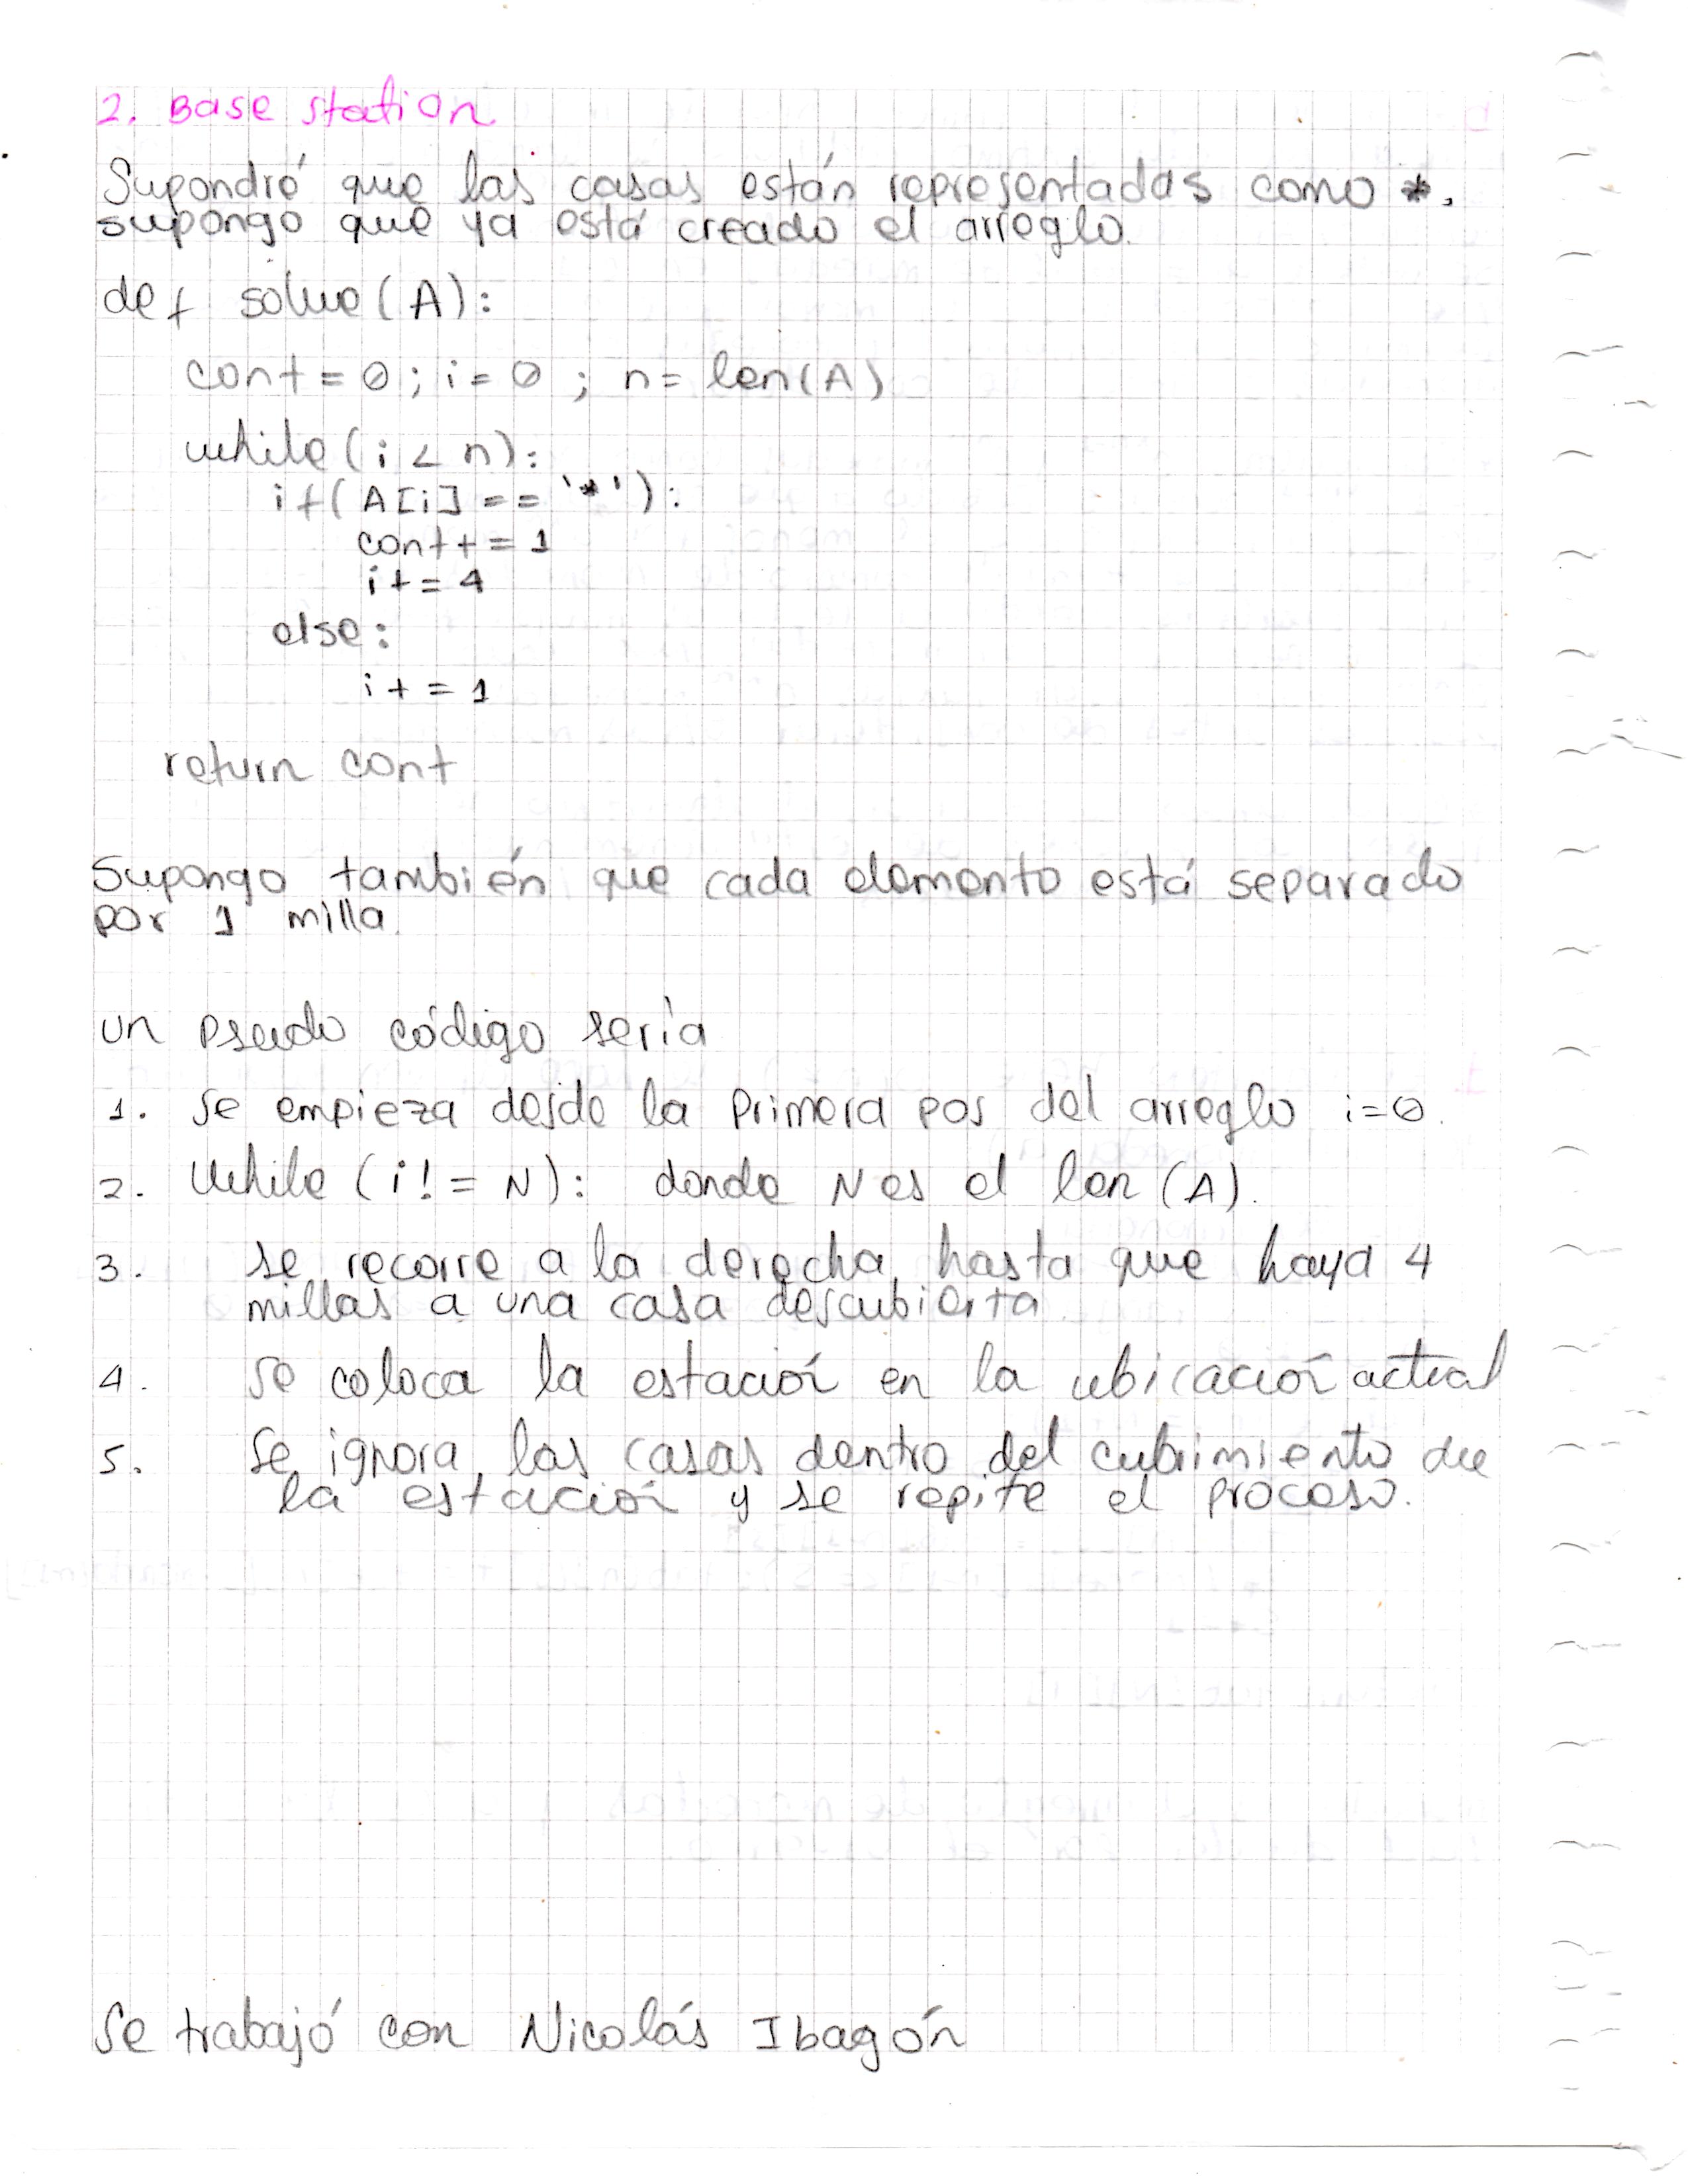 2. Base station
Supondré que las casas están representadas como *.
supongo que ya está creado el arreglo.
def solve(A):
cont = 0; i = 0; n = len(A)
while(i < n):
if(A[i] == '*'):
cont += 1
i += 4
else:
i += 1
return cont
Supongo también que cada elemento está separado
por 1 milla.
Un pseudo código sería
1. Se empieza desde la primera pos del arreglo i=0.
2. While (i != N): donde N es el len(A).
3. se recorre a la derecha hasta que haya 4
millas a una casa descubierta
4. Se coloca la estación en la ubicación actual
5. Se ignora las casas dentro del cubrimiento de
la estación y se repite el proceso.
Se trabajó con Nicolás Ibagón